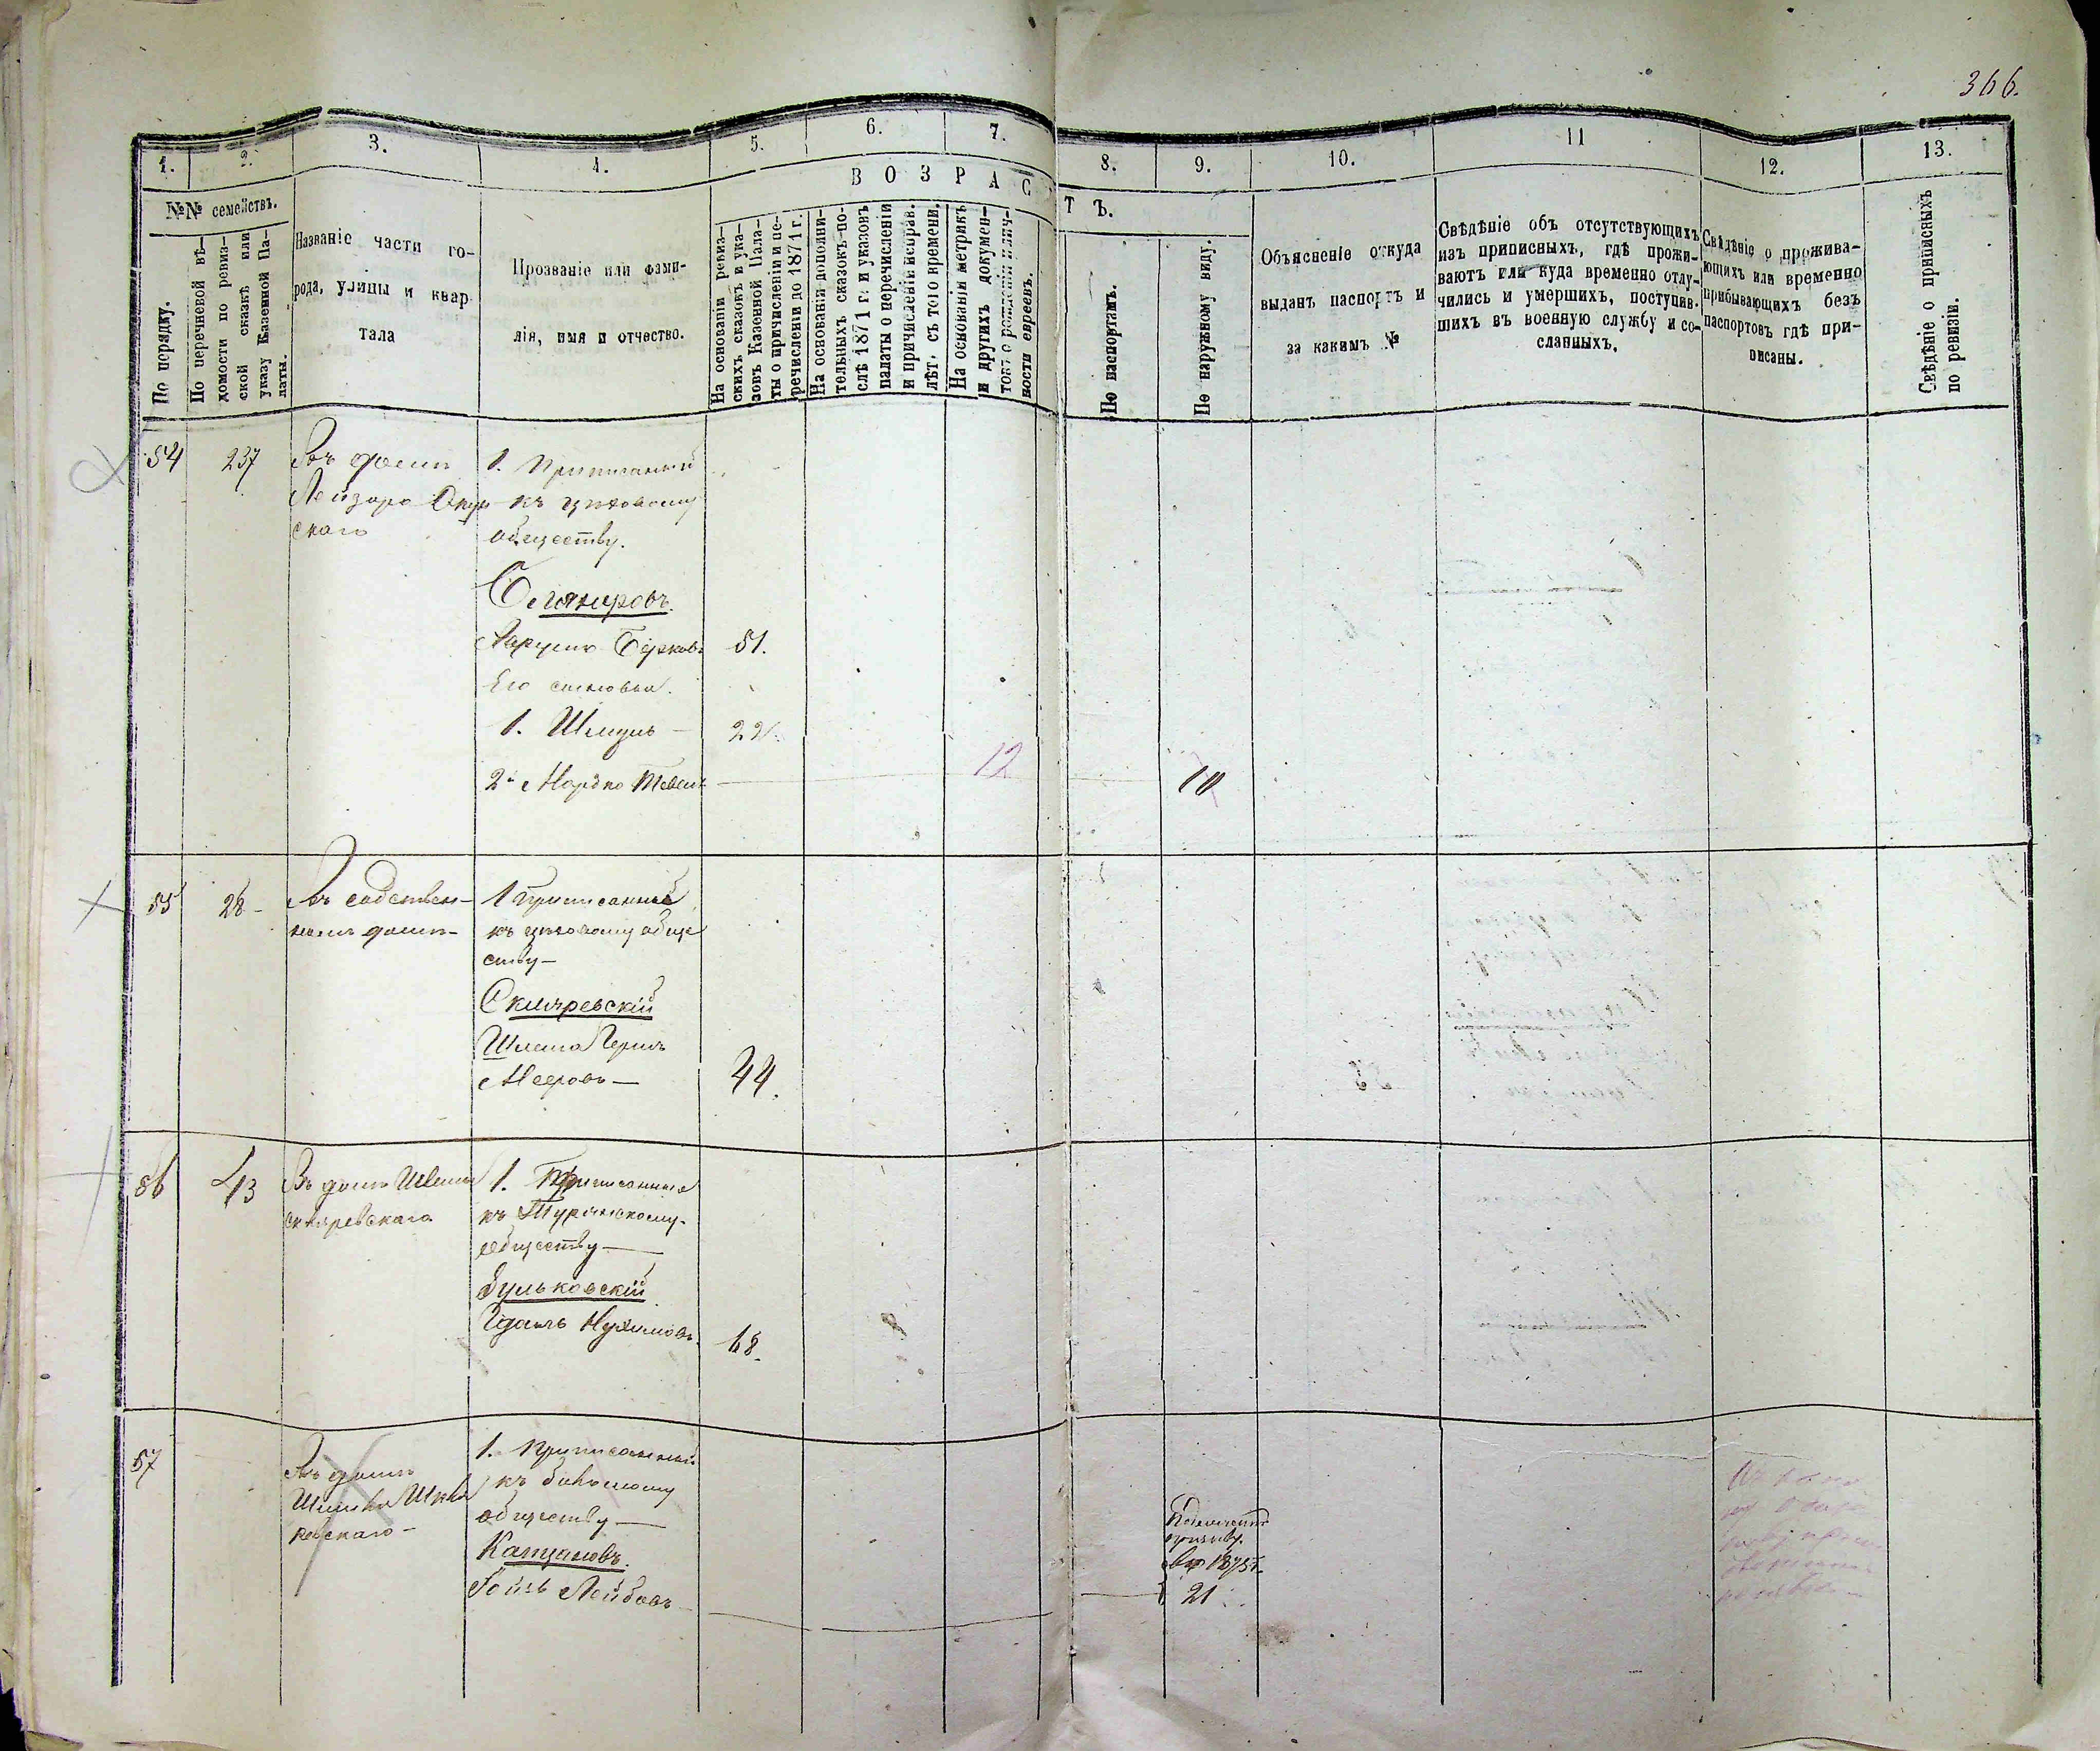 366.
1. 2. 3. 4. 5. 6. 7. 8. 9. 10. 11 12. 13.
№№ семействъ.
По порядку.
По перечневой вѣ-
домости по ревиз-
ской сказкѣ или
указу Казенной Па-
латы.
Названіе части го-
рода, улицы и квар
тала
Прозваніе или фами-
лія, имя и отчество.
ВОЗРАСТЪ.
На основаніи ревиз-
скихъ сказокъ и ука-
зовъ Казенной Пала-
ты о причисленіи и пе-
речисленіи до 1871 г.
На основаніи дополни-
тельныхъ сказокъ по-
слѣ 1871 г. и указовъ
палаты о перечисленіи
и причисленіи исправ.
лѣт. съ того времени.
На основаніи метрикъ
и другихъ докумен-
товъ о рожденіи и лич-
ности евреевъ.
По паспортамъ.
По наружному виду.
Объясненіе откуда
выданъ паспортъ и
за какимъ №
Свѣдѣніе объ отсутствующихъ
изъ приписныхъ, гдѣ прожи-
ваютъ или куда временно отлу-
чились и умершихъ, поступив.
шихъ въ военную службу и со-
сланныхъ.
Свѣдѣніе о прожива-
ющихъ или временно
прибывающихъ безъ
паспортовъ гдѣ при-
писаны.
Свѣдѣніе о приписныхъ
по ревизіи.
54 237
Въ домѣ
Лейзора
скаго
1. Приписаный
къ цеховому
обществу.
Берков. 51.
Его сыновья.
1. Шмуль — 22.
2. Мордко 12 10
55 28 -
Въ собствен-
номъ домѣ-
1 Приписанный
къ цеховому обще
ству —
Скляревскій
Шлема Герш
Мееровъ — 44.
56 43
Въ домѣ Шлемы
Скляревскаго
1. Приписанный
къ Туринскому
обществу —
Бульковскій
Гдаль Нухимовъ 68.
57
Въ домѣ
1. Приписанный
къ
обществу —
Капцановъ.
Лейбовъ
призыву.
21